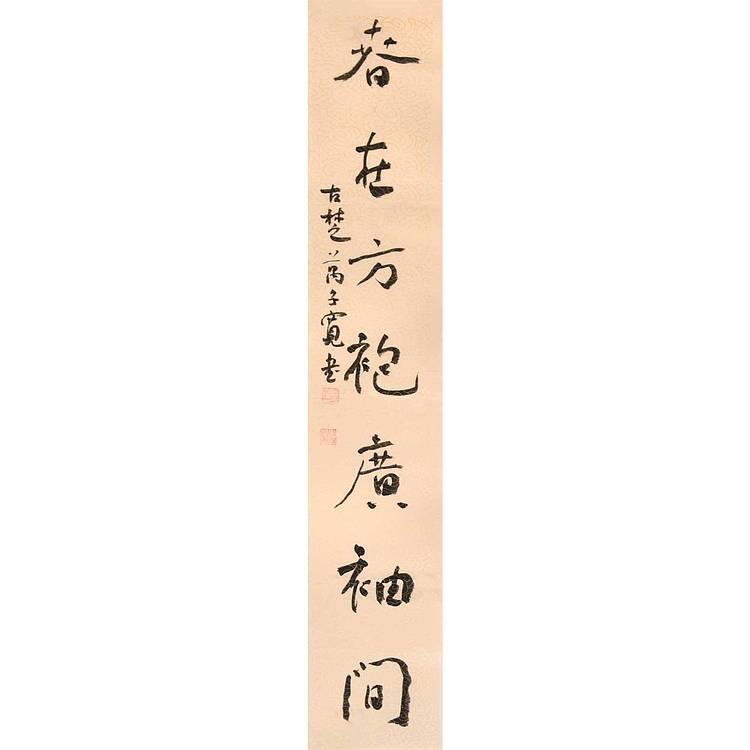 春在方袍廣袖間
古楚子寬書